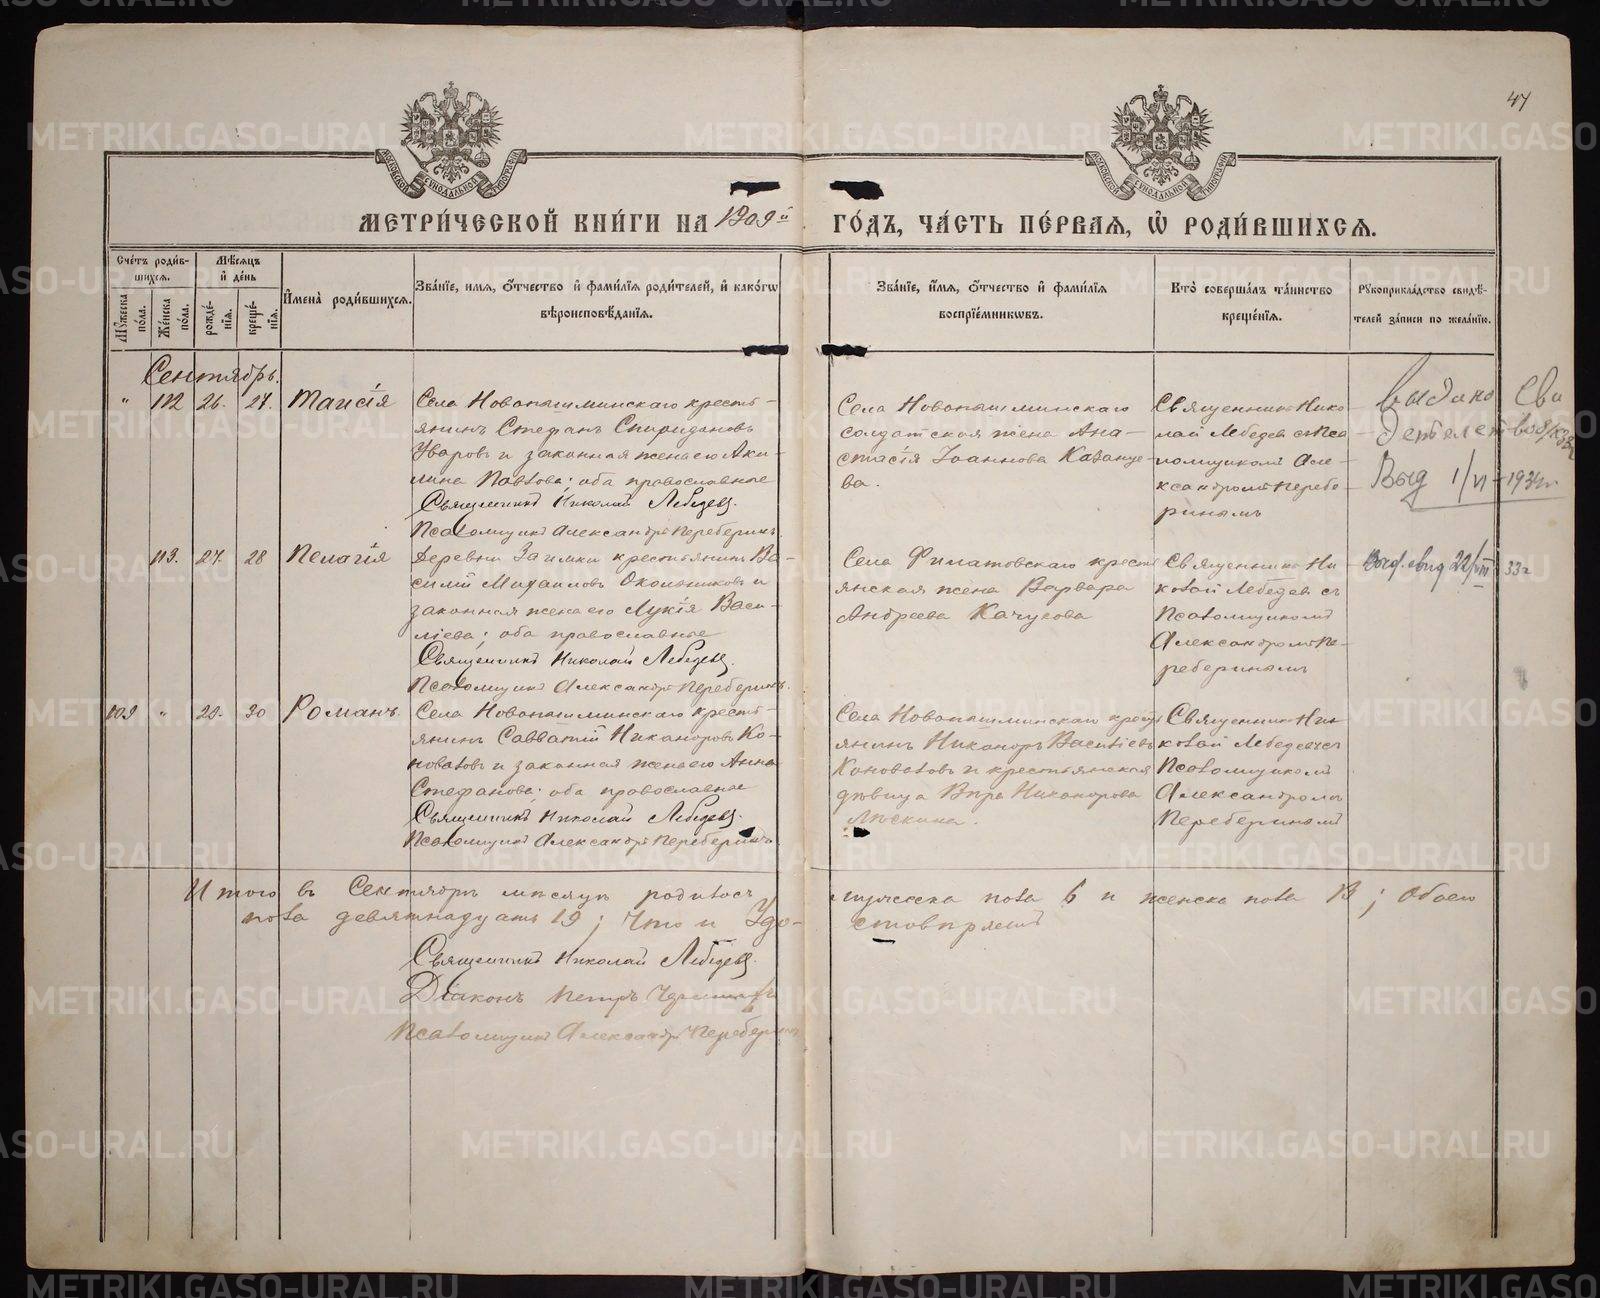 47
МЕТРИ́ЧЕСКОЙ КНИ́ГИ НА 1909й ГО́ДЪ, ЧА́СТЬ ПЕ́РВАЯ, Ѡ РОДИ́ВШИХСЯ.
Сче́тъ роди́в-
шихся.
Мѣ́сяцъ
и де́нь
Мꙋ́жеска по́ла.
Же́нска по́ла.
рожде́-
нія.
креще́-
нія.
Имена̀ роди́вшихся.
Зва́ніе, имя, о́тчество и фами́лія роди́телей, и како́гѡ
вѣроисповѣ́данія.
Зва́ніе, и́мя, о́тчество и фами́лія
воспріе́мникѡвъ.
Кто̀ соверша́лъ та́инство
креще́нія.
Рꙋкоприкла́дство свидѣ́-
телей за́писи по жела́нію.
Сентябрь.
" 112 26. 27. Таисія
Села Новопышминскаго кресть-
янинъ Стефанъ Спиридоновъ
Уваровъ и законная жена его Аки-
лина Павлова; оба православные
Священникъ Николай Лебедевъ.
Псаломщикъ Александръ Переберинъ
Села Новопышминскаго
солдатская жена Ана-
стасія Іоаннова Казанце-
ва.
Священникъ Нико-
лай Лебедев съ Пса
ломщикомъ Але-
ксандромъ Перебе-
ринымъ
Выдано Сви
детелетво
Выд 1/VI - 1934г
113. 27. 28 Пелагія
Деревни Заимки крестьянинъ Ва-
силій Михаиловъ Окольниковъ и
законная жена его Лукія Васи-
ліева; оба православные
Священникъ Николай Лебедевъ.
Псаломщикъ Александръ Переберинъ.
Села Филатовскаго кресть
янская жена Варвара
Андреева Качусова
Священникъ Ни-
колай Лебедев съ
Псаломщикомъ
Александромъ Пе-
реберинымъ
Выд. свид 22/VII 33г
109 " 29. 30 Романъ.
Села Новопышминскаго кресть-
янинъ Савватій Никаноровъ Ко-
новаловъ и законная жена его Анна
Стефанова; оба православные
Священникъ Николай Лебедевъ.
Псаломщикъ Александръ Переберинъ.
Села Новопышминскаго кресть
янинъ Никаноръ Васильевъ
Коноваловъ и крестьянская
дѣвица Вѣра Никанорова
Священникъ Ни-
колай Лебедевъ съ
Псаломщикомъ
Александромъ
Переберинымъ
Итого въ Сентябрѣ мѣсяцѣ родилось мужеска пола 6 и женска пола 13; Обоего
пола девятнадцать 19; Что и Удо-стовѣряемъ
Священникъ Николай Лебедевъ.
Діаконъ Петръ
Псаломщикъ Александръ Переберинъ
METRIKI.GASO-URAL.RU